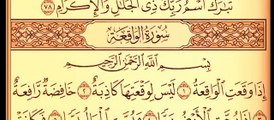 تَبَارَكَ اسْمُ رَبِّكَ ذِي الْجَلَالِ وَالْإِكْرَامِ ٧٨
سُورَةُ الْوَاقِعَةِ
بِسْمِ اللَّهِ الرَّحْمَٰنِ الرَّحِيمِ
إِذَا وَقَعَتِ الْوَاقِعَةُ ١ لَيْسَ لِوَقْعَتِهَا كَاذِبَةٌ ٢ خَافِضَةٌ رَافِعَةٌ